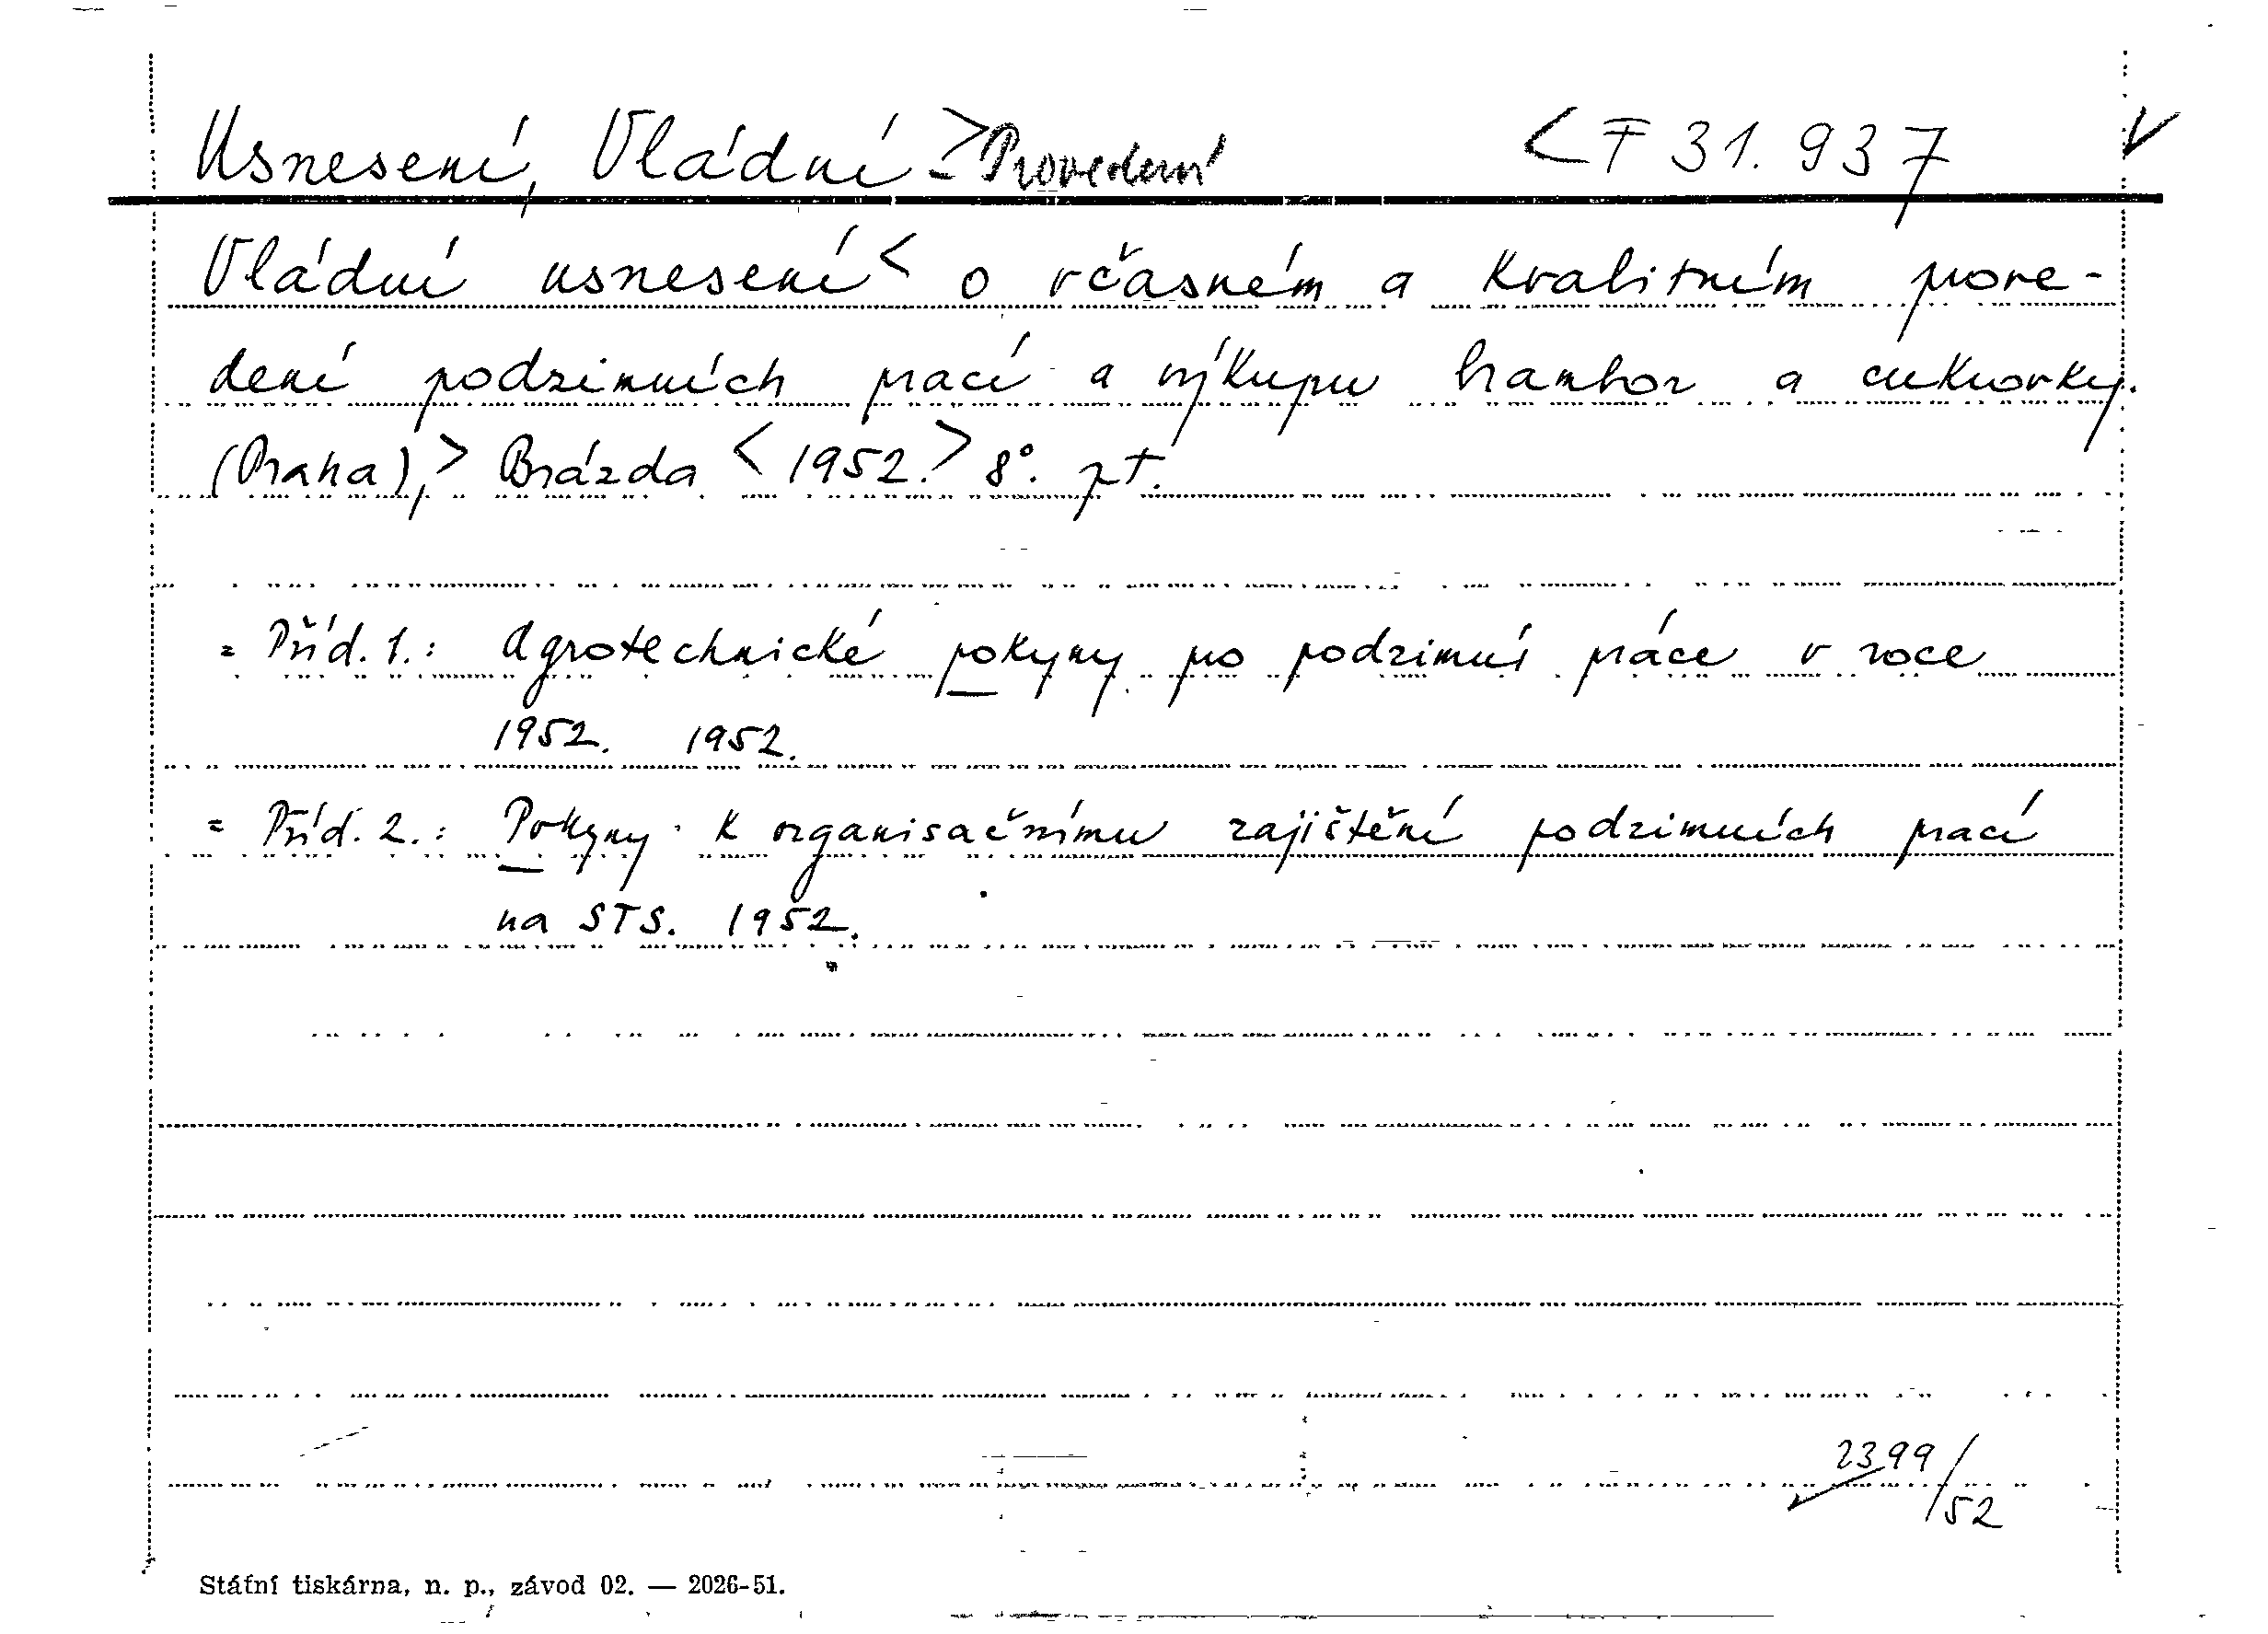 Usnesení, Vládní > - Provedení < F 31.937 V
Vládní usnesení < o včasném a kvalitním prove-
dení podzimních prací a výkupu brambor a cukrovky.
(Praha), > Brázda < 1952. > 8°. pt.
= Příd. 1.: Agrotechnické pokyny pro podzimní práce v roce
1952. 1952.
= Příd. 2.: Pokyny k organisačnímu zajištění podzimních prací
na STS. 1952.
2399/52
Státní tiskárna, n. p., závod 02. — 2026-51.